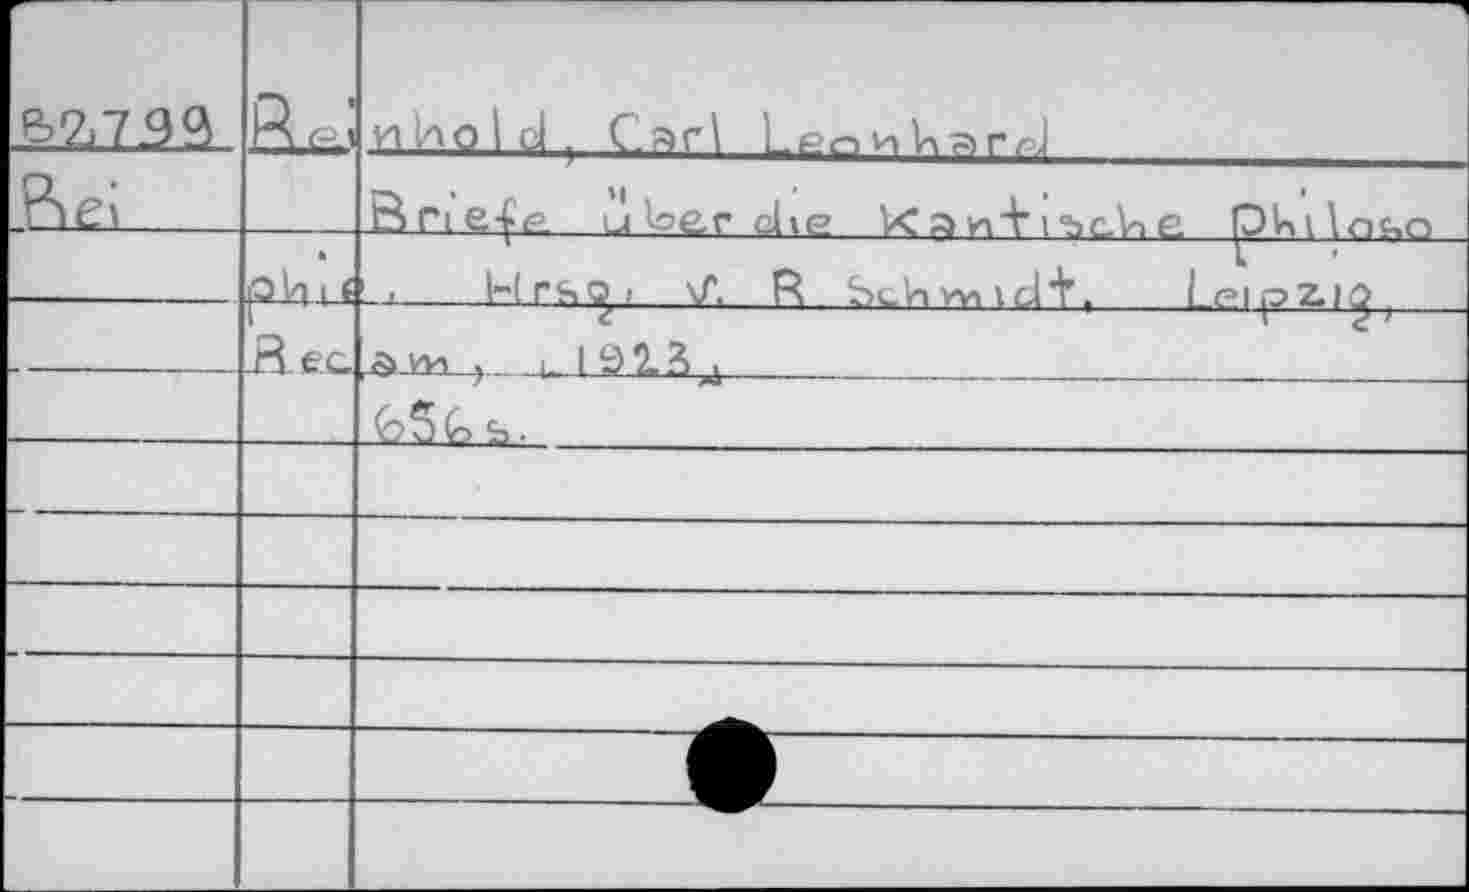 B2799 Reinhold, Carl Leonhard
Rei Briefe über die Kantische Philoso
phie. Hrsg. v. R Schmidt. Leipzig,
Reclam, [1923]
656 s.